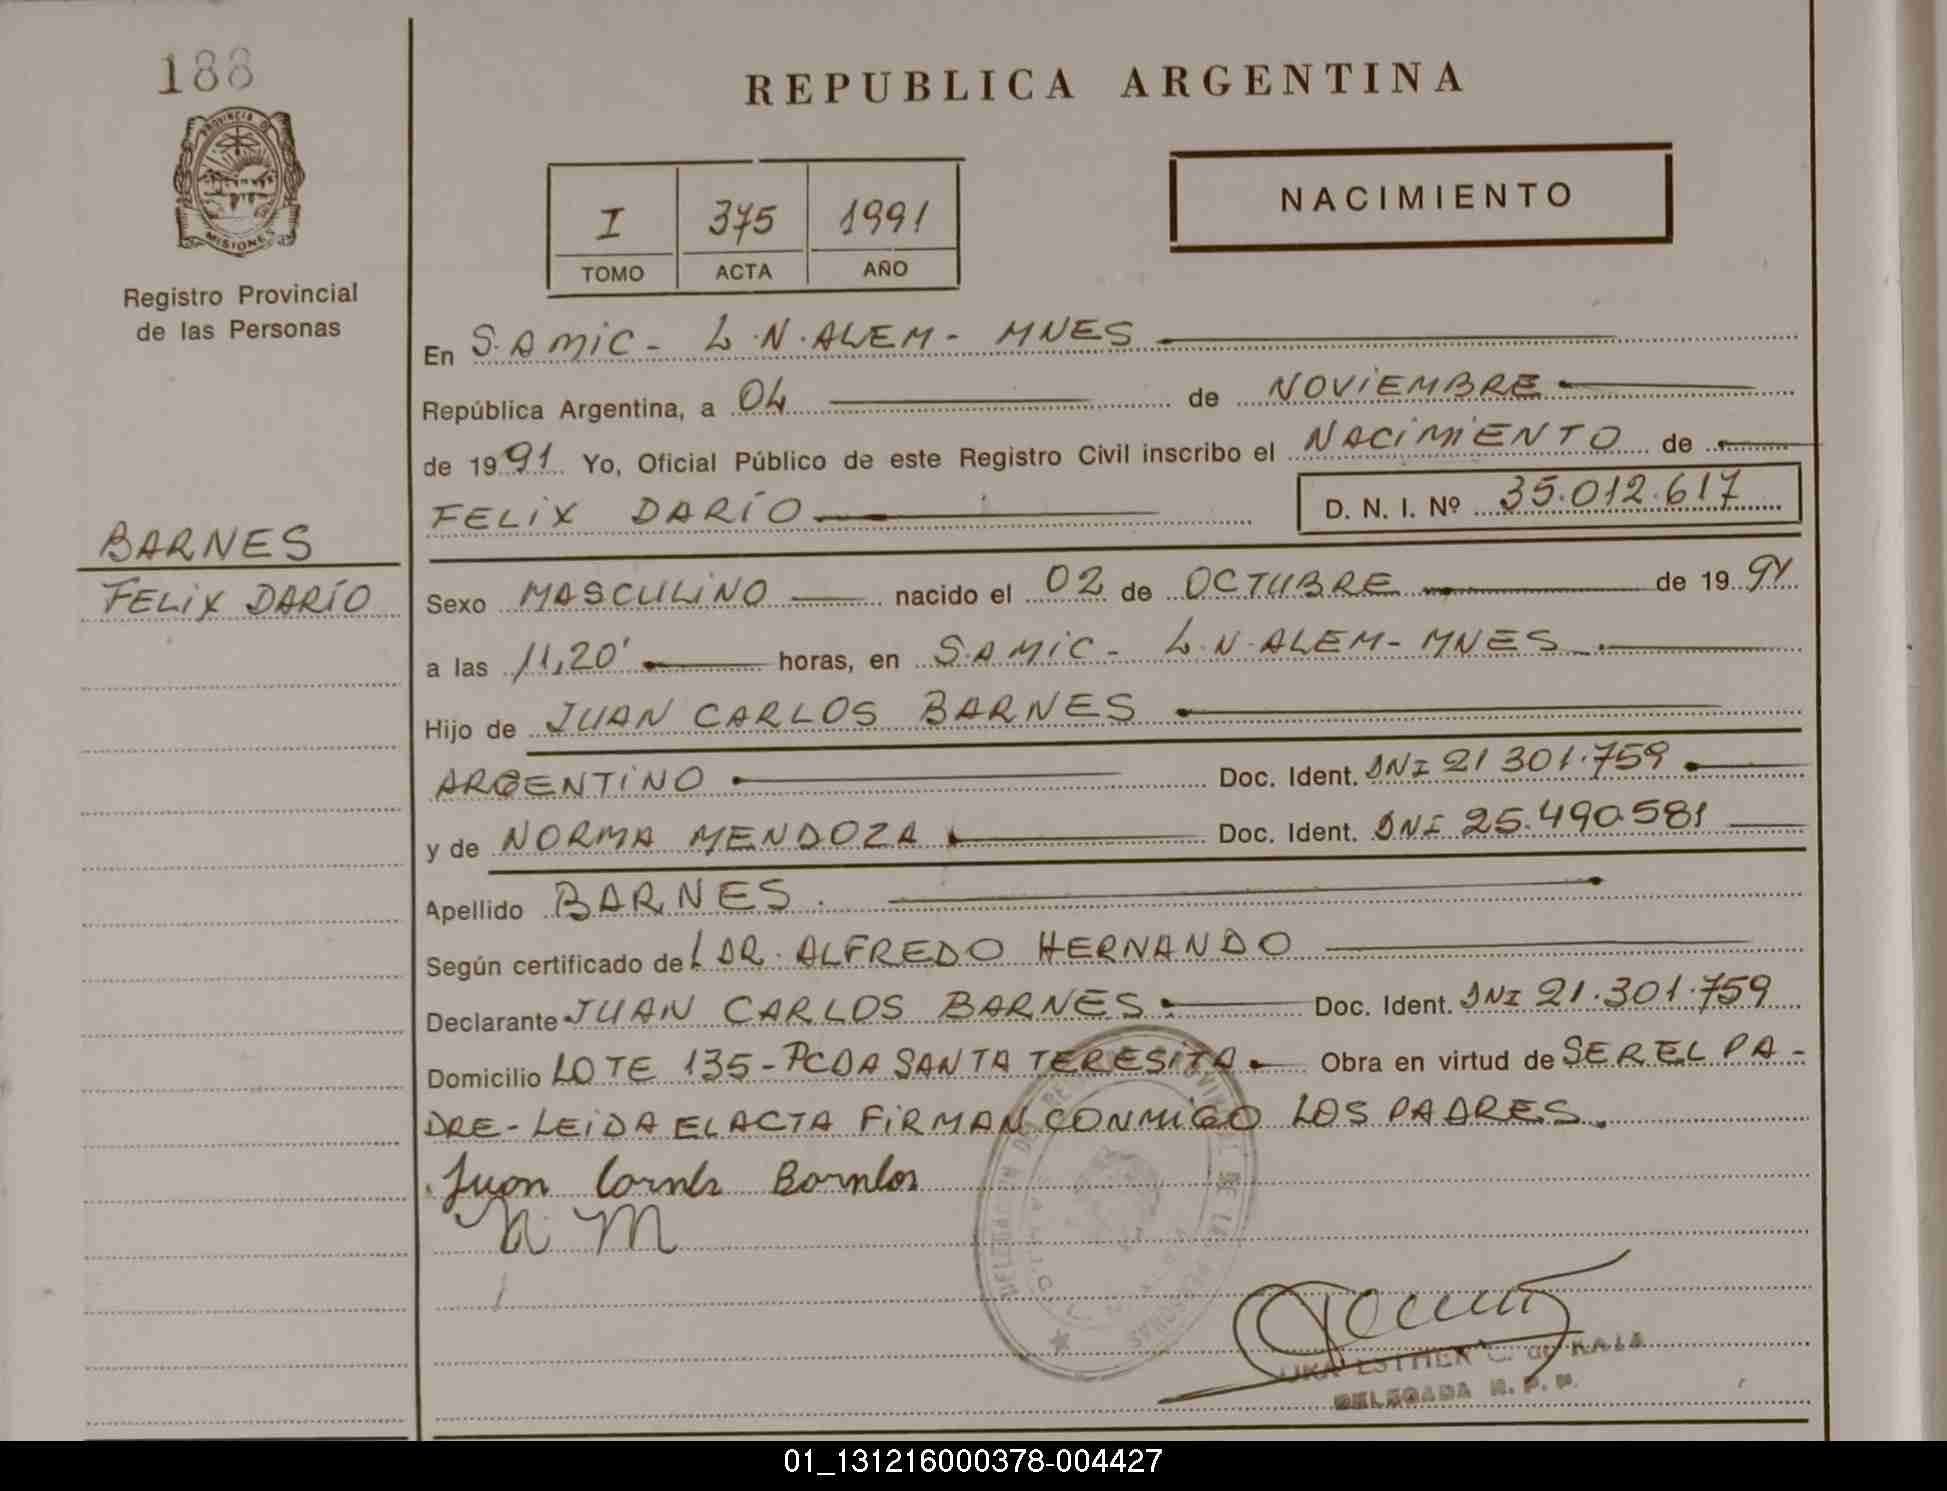 188
PROVINCIA DE
MISIONES
Registro Provincial
de las Personas
BARNES
FELIX DARÍO
REPUBLICA ARGENTINA
I 375 1991
TOMO ACTA AÑO
NACIMIENTO
En S.AMIC - L.N.ALEM - MNES
República Argentina, a 04 de NOVIEMBRE
de 1991 Yo, Oficial Público de este Registro Civil inscribo el NACIMIENTO de
FELIX DARÍO D. N. I. Nº 35.012.617
Sexo MASCULINO nacido el 02 de OCTUBRE de 1991
a las 11,20' horas, en S.AMIC - L.N.ALEM - MNES
Hijo de JUAN CARLOS BARNES
ARGENTINO Doc. Ident. DNI 21 301.759
y de NORMA MENDOZA Doc. Ident. DNI 25.490.581
Apellido BARNES.
Según certificado del DR. ALFREDO HERNANDO
Declarante JUAN CARLOS BARNES Doc. Ident. DNI 21.301.759
Domicilio LOTE 135 - PCDA SANTA TERESITA Obra en virtud de SER EL PA-
DRE - LEIDA EL ACTA FIRMAN CONMIGO LOS PADRES.
Juan
N M
ESTHER
DELEGADA R. P. P.
01_131216000378-004427